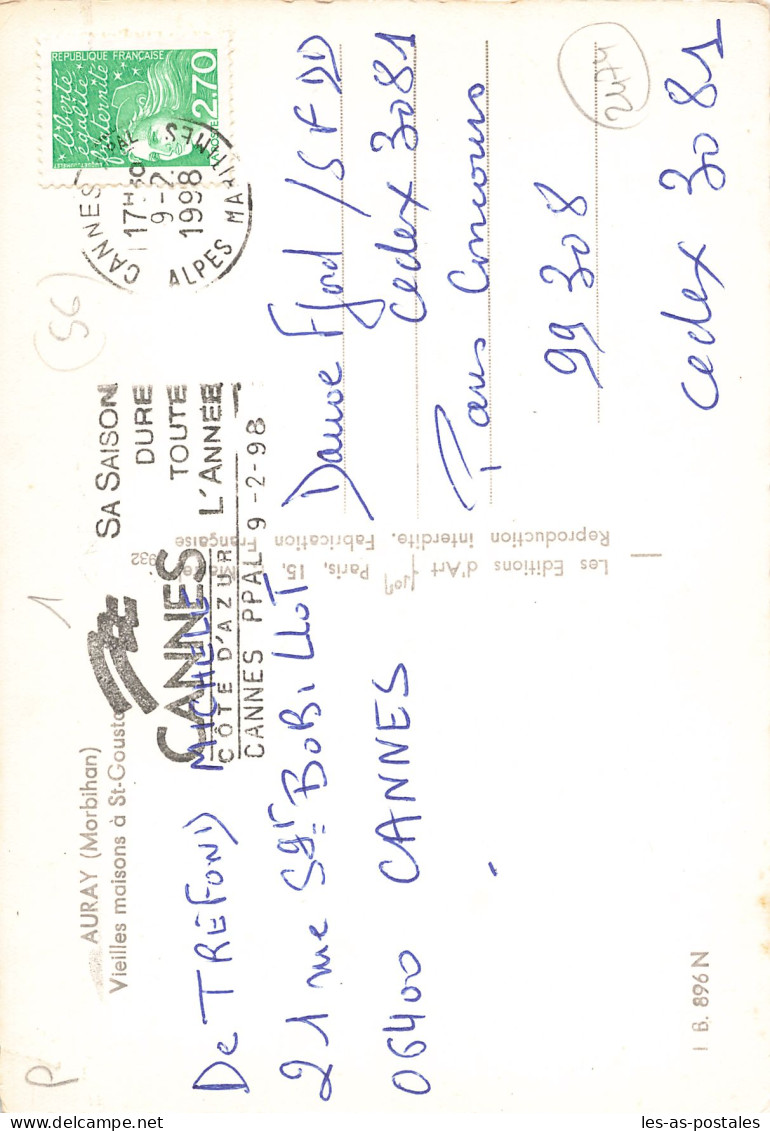 AURAY (Morbihan)
Vieilles maisons à St-Goustan
De TREFONI MICHELE
21 rue Sgt BOBILLOT
06400 CANNES
I B. 896 N
SA SAISON
DURE
TOUTE
L'ANNÉE
CANNES
CÔTE D'AZUR
CANNES PPAL 9-2-98
RÉPUBLIQUE FRANÇAISE
liberté
égalité
fraternité
2,70
LA POSTE
CANNES
17H30
9-2
1998
ALPES MARITIMES
Les Éditions d'Art Paris, 15,
Reproduction interdite. Fabrication Française
Cedex 3081
Paris Concours
99 308
Cedex 3081
2474
56
1
P
les-as-postales